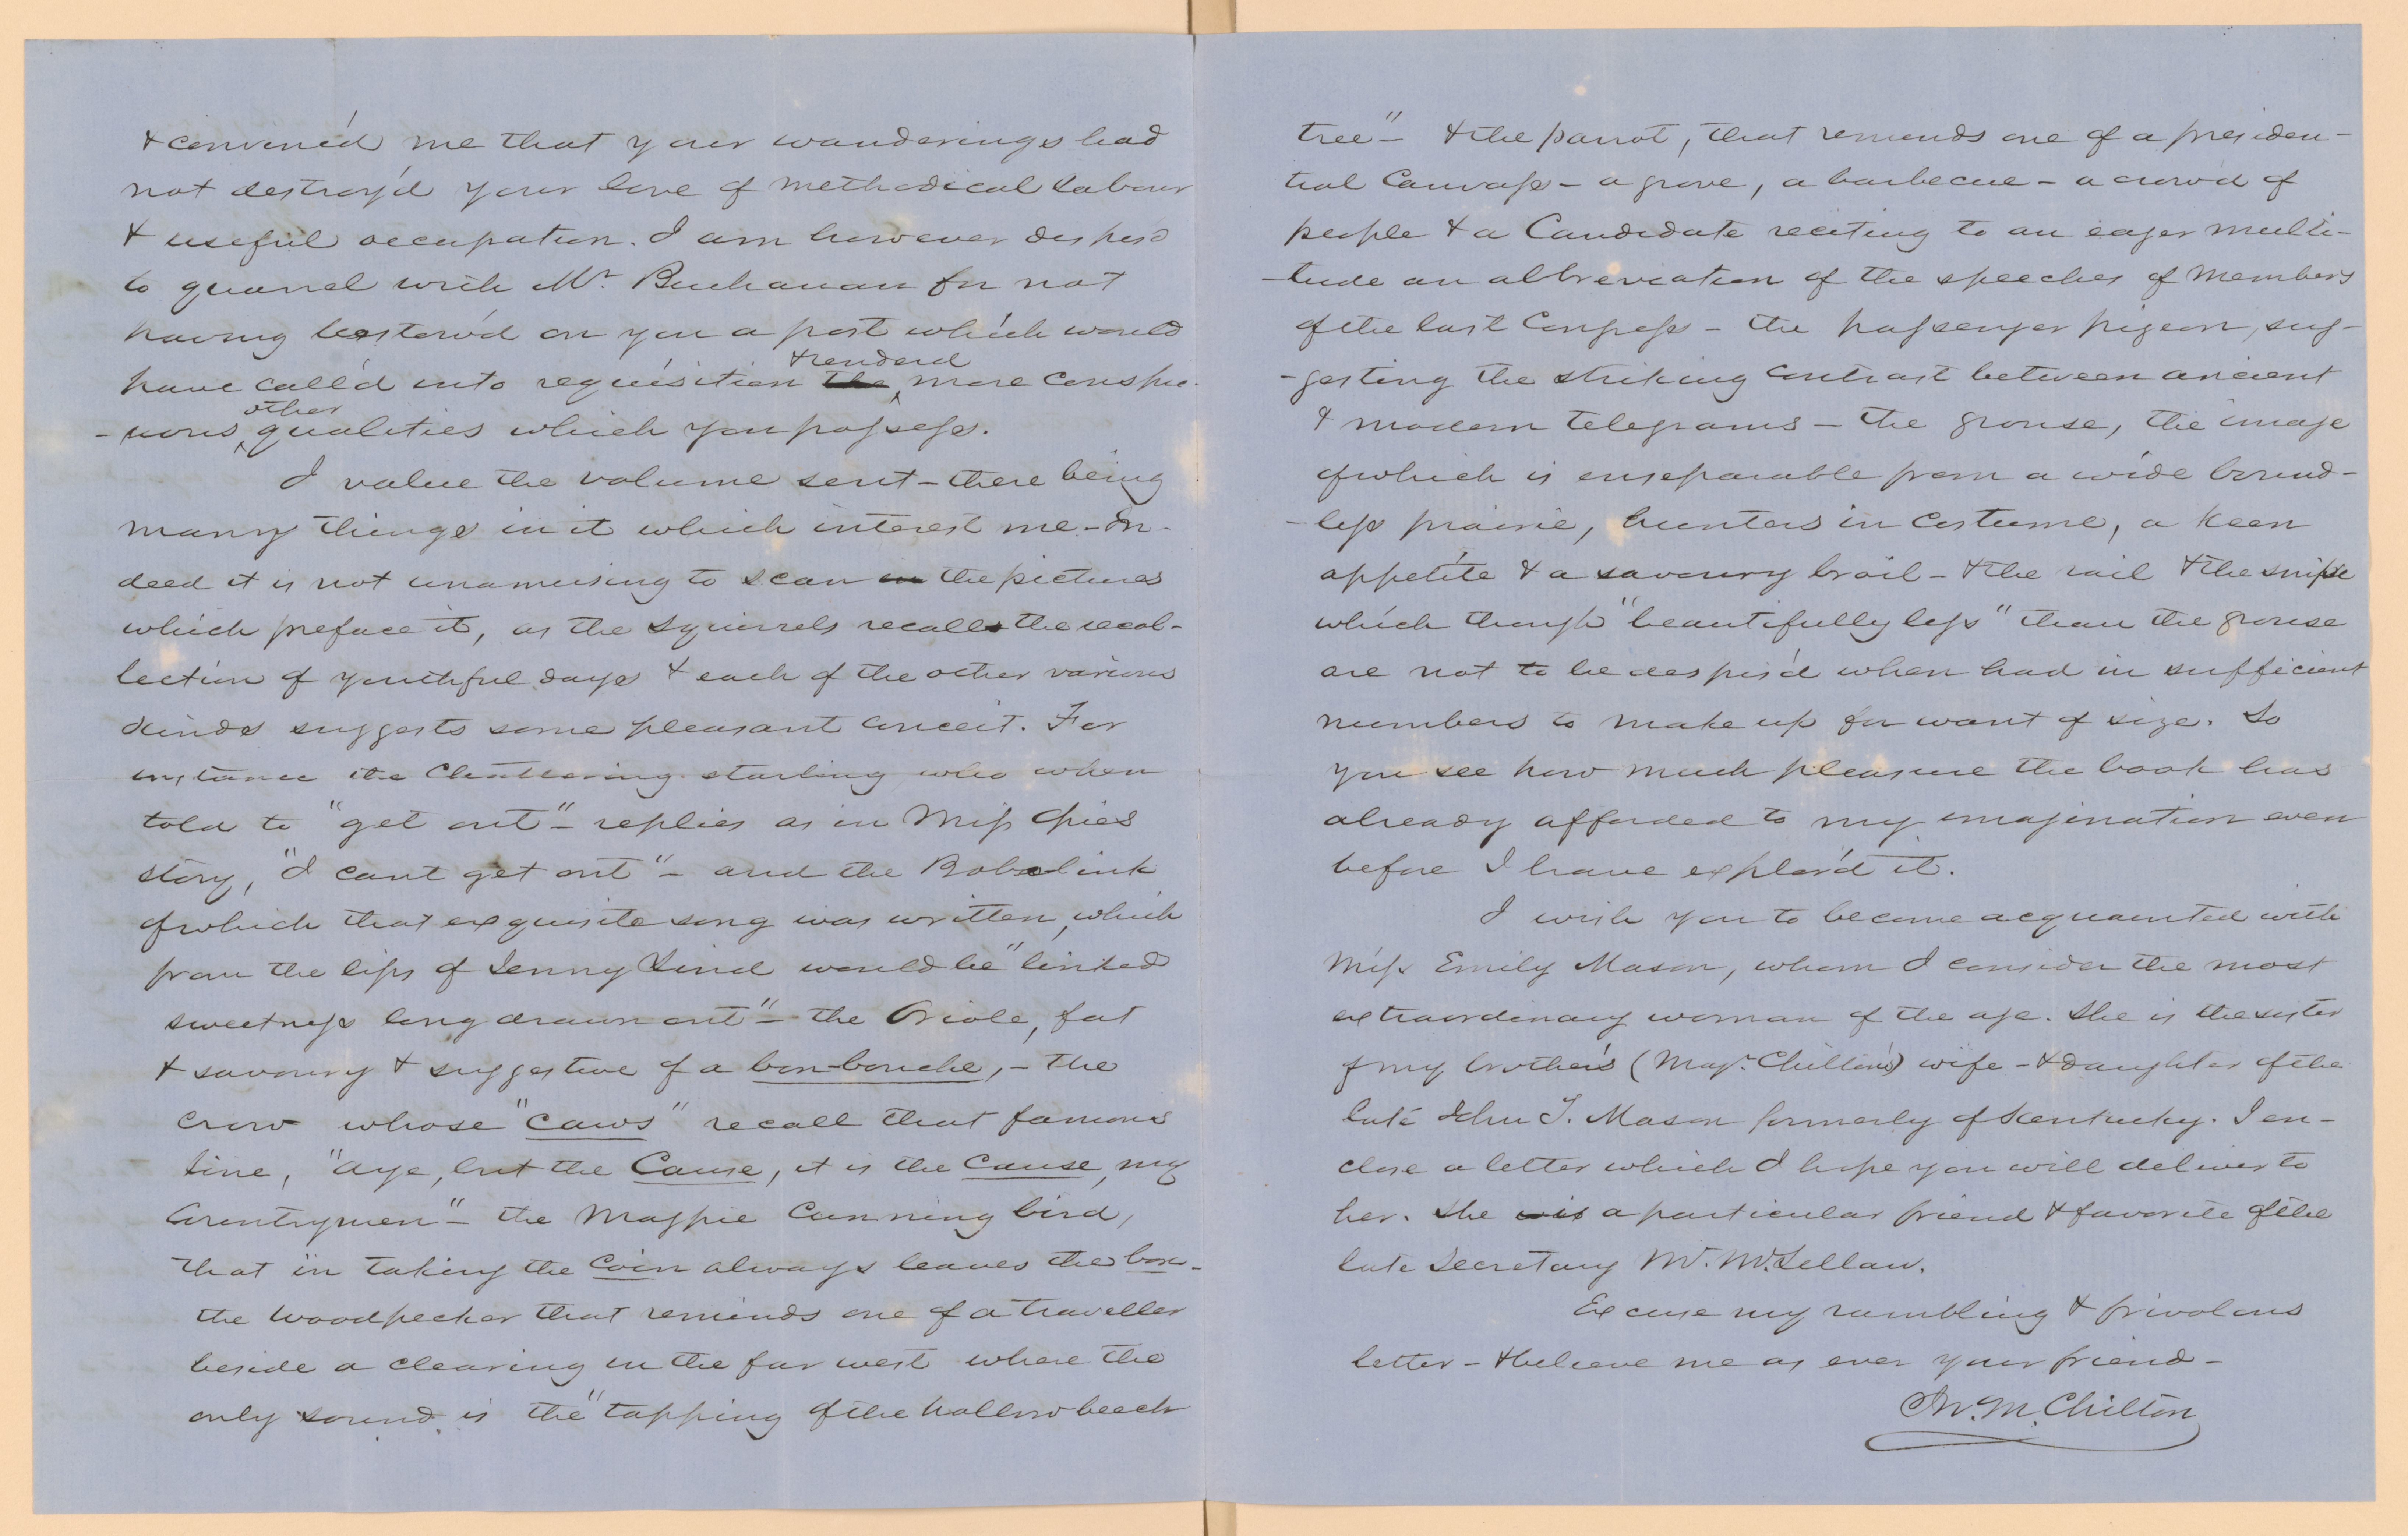 & convinc'd me that your wanderings had
not destroy'd your love of methodical labour
& useful occupation. I am however dispos'd
to quarrel with Mr. Buchanan for not
having bestow'd on you a post which would
& renderd
have call'd into requisition the more conspic-
other
-uous qualities which you possess.
I value the volume sent – there being
many things in it which interest me – In-
deed it is not unamusing to scan in the pictures
which preface it, as the squirrels recall the recol-
lection of youthful days & each of the other various
kinds suggests some pleasant conceit. For
instance the Chattering starling who when
told to "get out" – replies as in Miss
story, "I cant get out" – and the Bobolink
of which that exquisite song was written, which
from the lips of Jenny Lind would be "linked
sweetness long drawn out" – the Oriole, fat
& savoury & suggestive of a bon-bouche, – the
crow whose "caws" recall that famous
line, "Aye, but the Cause, it is the Cause, my
Countrymen" – the Magpie Cunning bird,
that in taking the Coin always leaves the box –
the Woodpecker that reminds one of a traveller
beside a clearing in the far west where the
only sound is the "tapping of the hollow beech
tree" – & the parrot, that reminds one of a presiden-
tial Canvass – a grove, a barbecue – a crowd of
people & a Candidate reciting to an eager multi-
-tude an abbreviation of the speeches of Members
of the last Congress – the passenger pigeon, sug-
-gesting the striking contrast between ancient
& modern telegrams – the grouse, the image
of which is enseparable from a wide bound-
-less prairie, hunters in costume, a keen
appetite & a savoury broil – & the rail & the snipe
which though "beautifully less" than the grouse
are not to be despis'd when had in sufficient
numbers to make up for want of size. So
you see how much pleasure the book has
already afforded to my imagination even
before I have explor'd it.
I wish you to become acquainted with
Miss Emily Mason, whom I consider the most
extraordinary woman of the age. She is the sister
of my brother's (Majr. Chilton's) wife – & daughter of the
late John T. Mason formerly of Kentucky. I en-
close a letter which I hope you will deliver to
her. She is a particular friend & favorite of the
late Secretary Mr. McLellan.
Excuse my rambling & frivolous
letter – & believe me as ever your friend –
W. M. Chilton